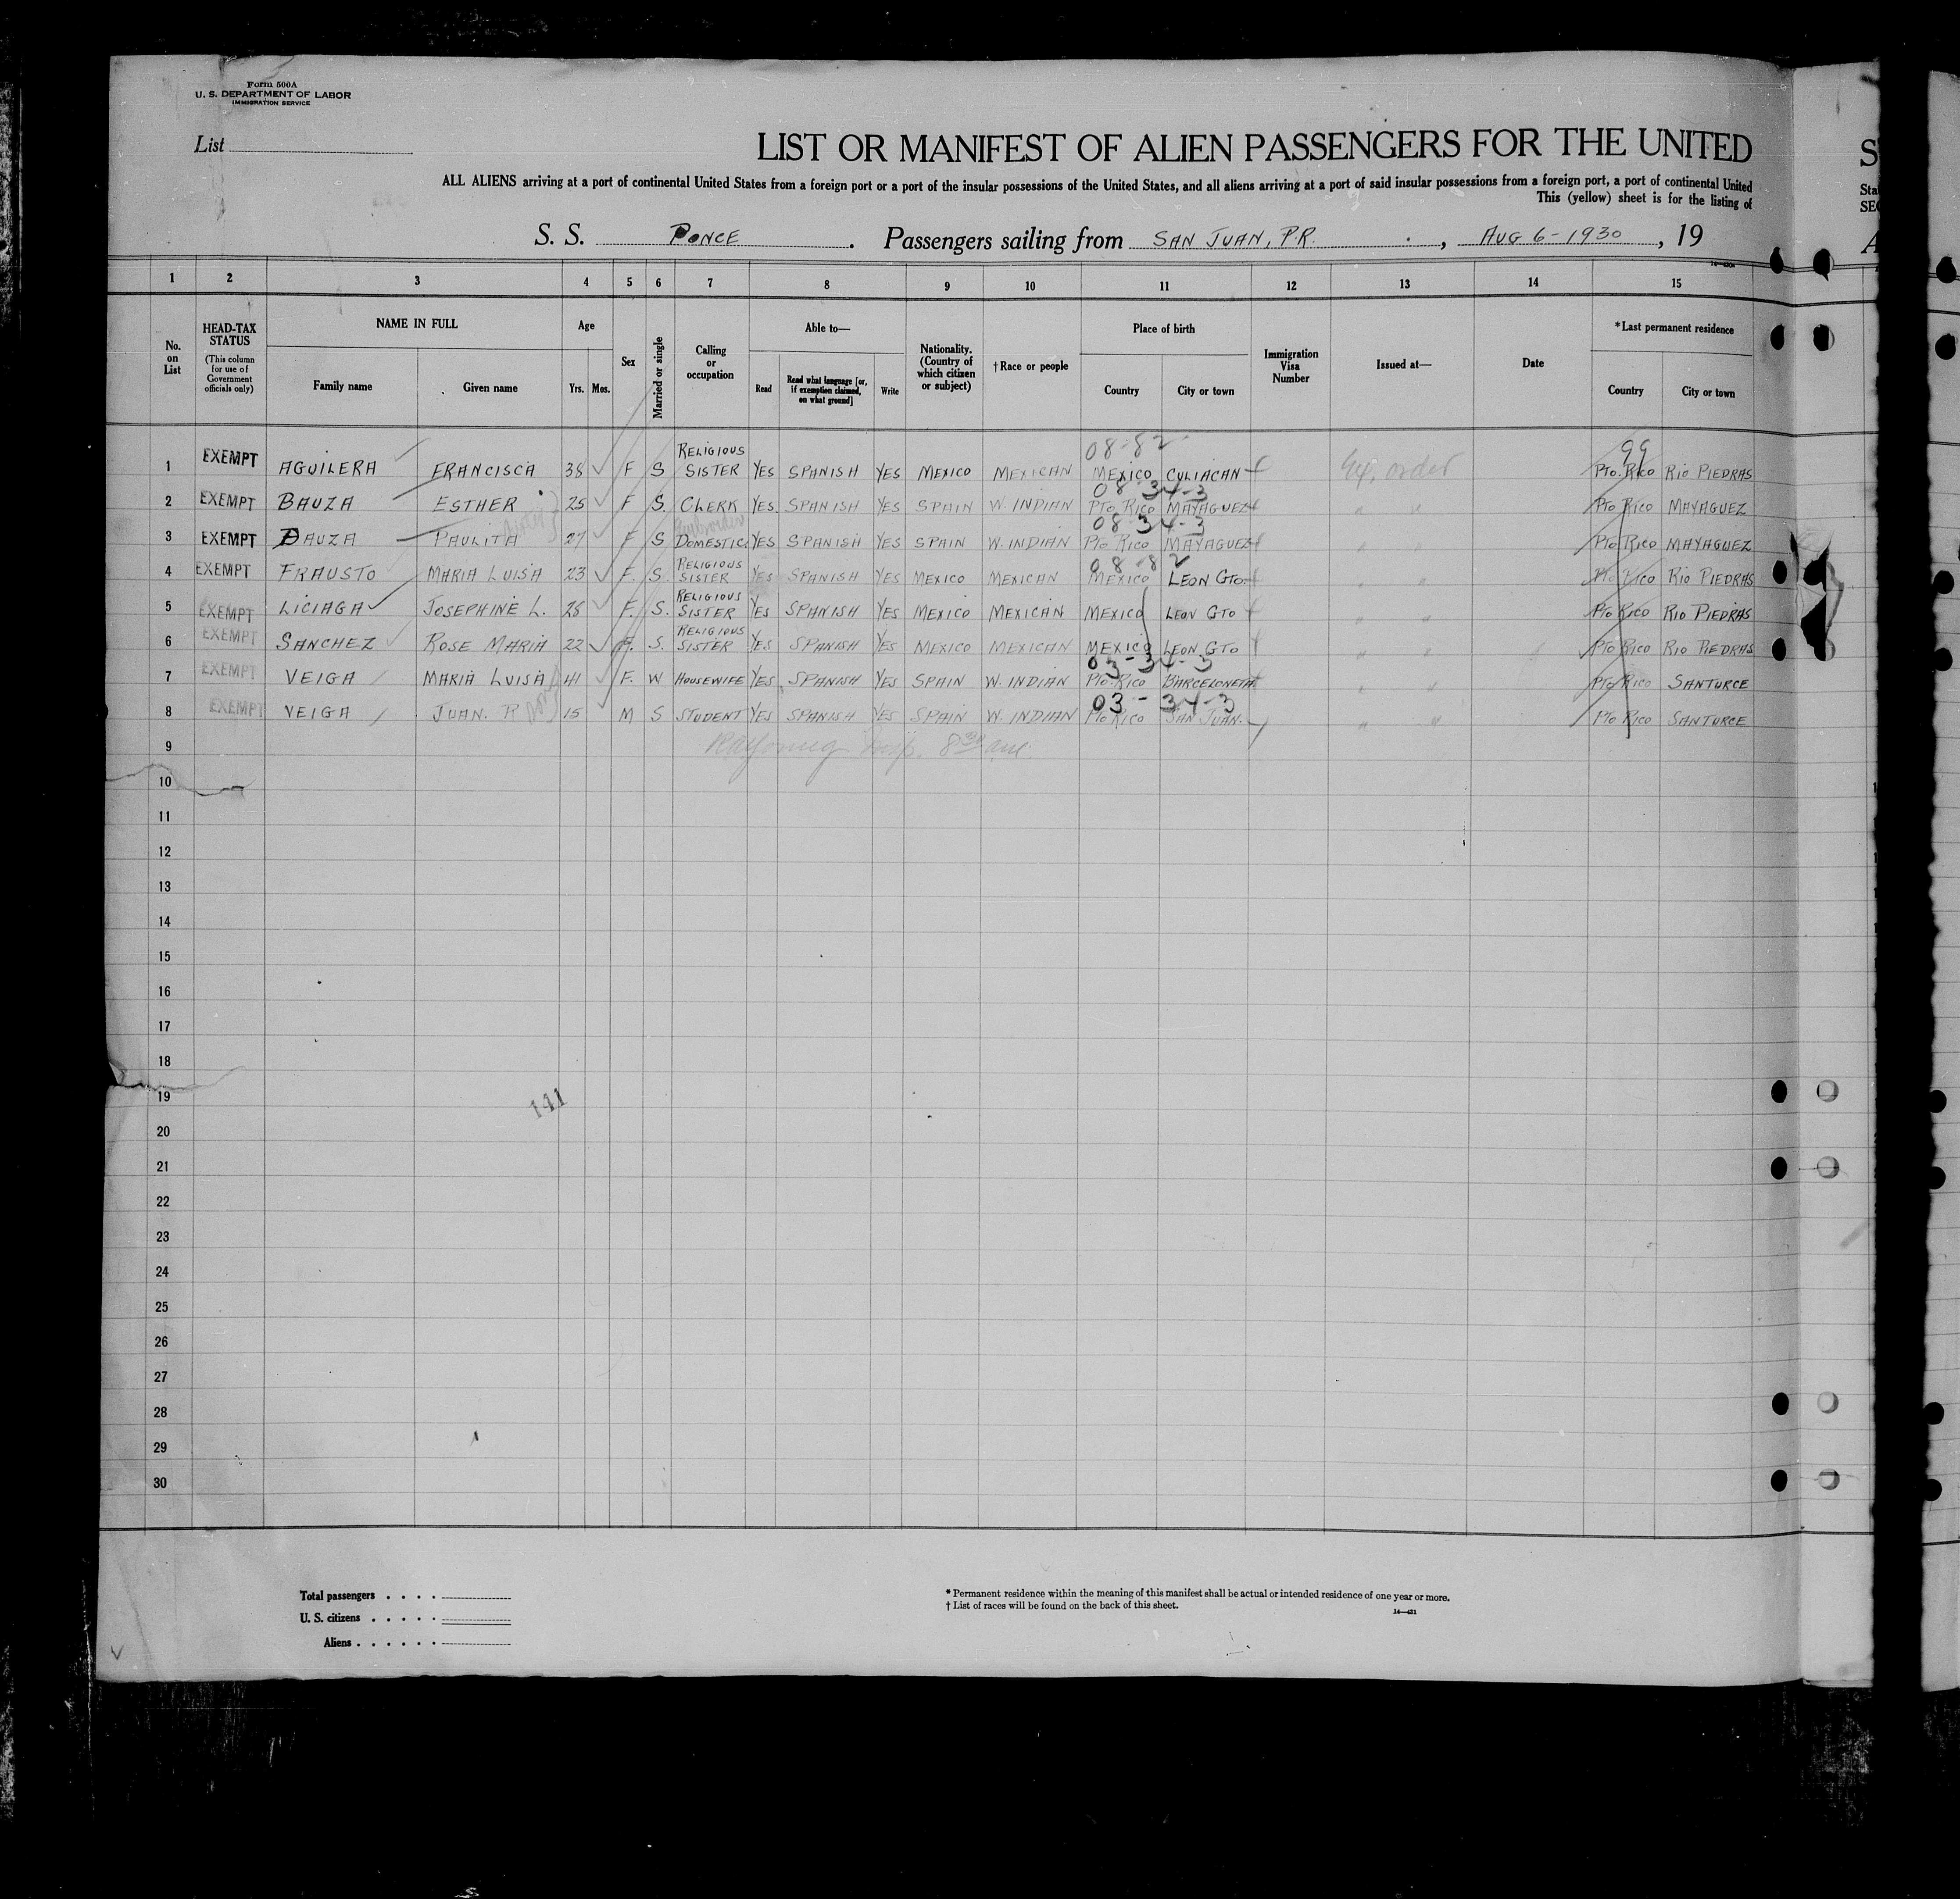 Form 500A
U. S. DEPARTMENT OF LABOR
IMMIGRATION SERVICE
List
LIST OR MANIFEST OF ALIEN PASSENGERS FOR THE UNITED
ALL ALIENS arriving at a port of continental United States from a foreign port or a port of the insular possessions of the United States, and all aliens arriving at a port of said insular possessions from a foreign port, a port of continental United
This (yellow) sheet is for the listing of
S. S. PONCE . Passengers sailing from SAN JUAN, P.R. , AUG 6-1930 , 19
1 2 3 4 5 6 7 8 9 10 11 12 13 14 15
No. on List
HEAD-TAX STATUS
(This column for use of Government officials only)
NAME IN FULL
Family name Given name
Age
Yrs. Mos.
Sex
Married or single
Calling or occupation
Able to—
Read
Read what language [or, if exemption claimed, on what ground]
Write
Nationality. (Country of which citizen or subject)
†Race or people
Place of birth
Country City or town
Immigration Visa Number
Issued at—
Date
*Last permanent residence
Country City or town
08-82 99
1 EXEMPT AGUILERA FRANCISCA 38 F S RELIGIOUS SISTER YES SPANISH YES MEXICO MEXICAN MEXICO CULIACAN order PTO. RICO RIO PIEDRAS
08 34-3
2 EXEMPT BAUZA ESTHER 25 F S. CLERK YES. SPANISH YES SPAIN W. INDIAN PTO RICO MAYAGUEZ " " PTO RICO MAYAGUEZ
08 34-3
3 EXEMPT BAUZA PAULITA 27 F S DOMESTIC YES SPANISH YES SPAIN W. INDIAN PTO RICO MAYAGUEZ " " PTO RICO MAYAGUEZ
08-82
4 EXEMPT FRAUSTO MARIA LUISA 23 F. S. RELIGIOUS SISTER YES SPANISH YES MEXICO MEXICAN MEXICO LEON GTO. " " PTO RICO RIO PIEDRAS
5 EXEMPT LICIAGA JOSEPHINE L. 28 F. S. RELIGIOUS SISTER YES SPANISH YES MEXICO MEXICAN MEXICO LEON GTO " " PTO RICO RIO PIEDRAS
6 EXEMPT SANCHEZ ROSE MARIA 22 F. S. RELIGIOUS SISTER YES SPANISH YES MEXICO MEXICAN MEXICO LEON GTO " " PTO RICO RIO PIEDRAS
03-34-3
7 EXEMPT VEIGA MARIA LUISA 41 F. W HOUSEWIFE YES SPANISH YES SPAIN W. INDIAN PTO. RICO BARCELONETA " " PTO RICO SANTURCE
03-34-3
8 EXEMPT VEIGA JUAN. R 15 M S STUDENT YES SPANISH YES SPAIN W. INDIAN PTO RICO SAN JUAN. " " PTO RICO SANTURCE
9
10
11
12
13
14
15
16
17
18
19
141
20
21
22
23
24
25
26
27
28
29
30
Total passengers
U. S. citizens
Aliens
* Permanent residence within the meaning of this manifest shall be actual or intended residence of one year or more.
† List of races will be found on the back of this sheet.
14—421